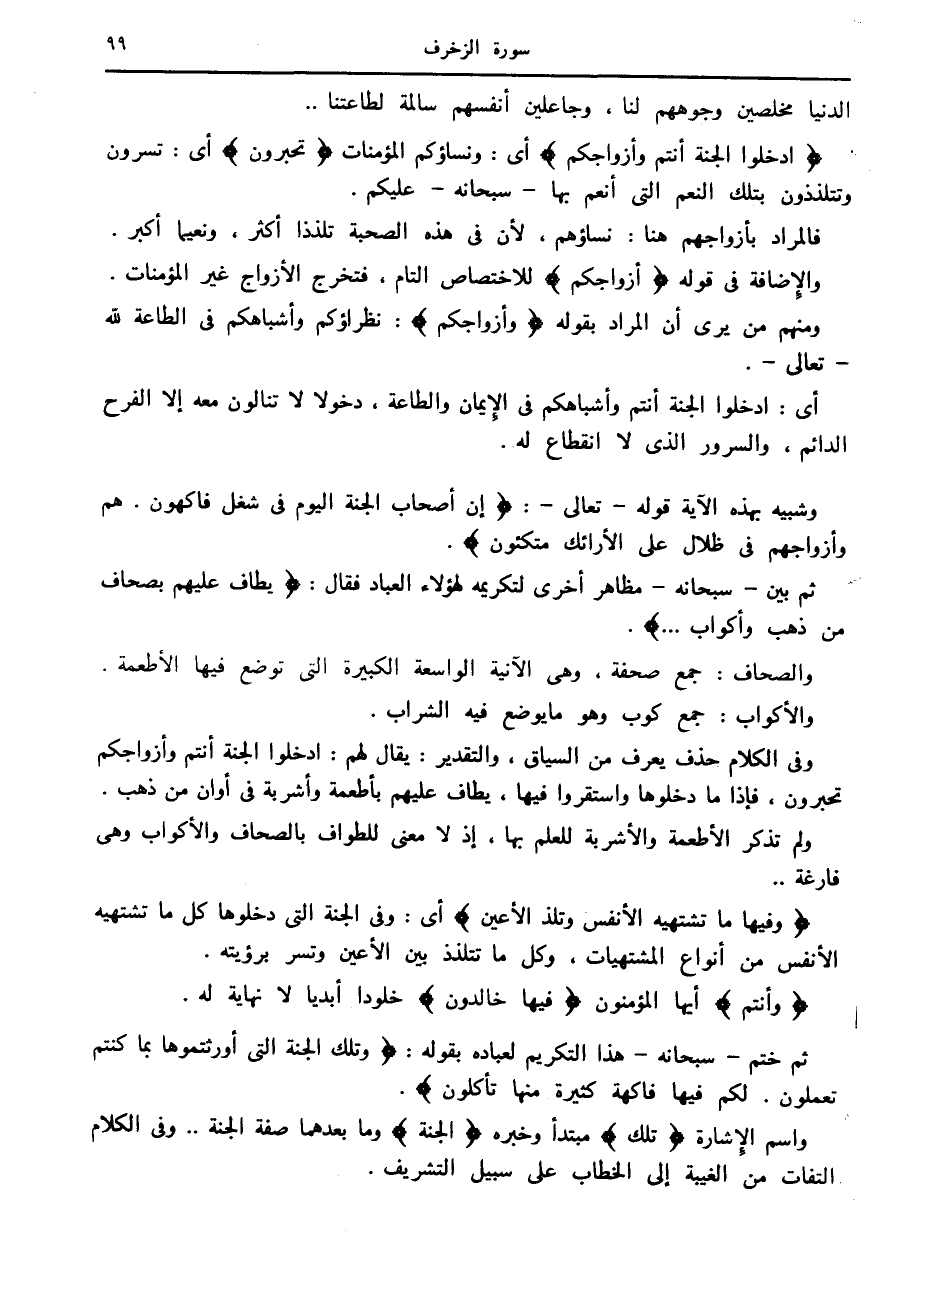 سورة الزخرف ٩٩
الدنيا مخلصين وجوههم لنا ، وجاعلين أنفسهم سالمة لطاعتنا ..
﴿ ادخلوا الجنة أنتم وأزواجكم ﴾ أى : ونساؤكم المؤمنات ﴿ تحبرون ﴾ أى : تسرون
وتتلذذون بتلك النعم التى أنعم بها – سبحانه – عليكم .
فالمراد بأزواجهم هنا : نساؤهم ، لأن فى هذه الصحبة تلذذا أكثر ، ونعيما أكبر .
والإضافة فى قوله ﴿ أزواجكم ﴾ للاختصاص التام ، فتخرج الأزواج غير المؤمنات .
ومنهم من يرى أن المراد بقوله ﴿ وأزواجكم ﴾ : نظراؤكم وأشباهكم فى الطاعة لله
– تعالى – .
أى : ادخلوا الجنة أنتم وأشباهكم فى الإيمان والطاعة ، دخولا لا تنالون معه إلا الفرح
الدائم ، والسرور الذى لا انقطاع له .
وشبيه بهذه الآية قوله – تعالى – : ﴿ إن أصحاب الجنة اليوم فى شغل فاكهون . هم
وأزواجهم فى ظلال على الأرائك متكئون ﴾ .
ثم بين – سبحانه – مظاهر أخرى لتكريمه لهؤلاء العباد فقال : ﴿ يطاف عليهم بصحاف
من ذهب وأكواب ...﴾ .
والصحاف : جمع صحفة ، وهى الآنية الواسعة الكبيرة التى توضع فيها الأطعمة .
والأكواب : جمع كوب وهو مايوضع فيه الشراب .
وفى الكلام حذف يعرف من السياق ، والتقدير : يقال لهم : ادخلوا الجنة أنتم وأزواجكم
تحبرون ، فإذا ما دخلوها واستقروا فيها ، يطاف عليهم بأطعمة وأشربة فى أوان من ذهب .
ولم تذكر الأطعمة والأشربة للعلم بها ، إذ لا معنى للطواف بالصحاف والأكواب وهى
فارغة ..
﴿ وفيها ما تشتهيه الأنفس وتلذ الأعين ﴾ أى : وفى الجنة التى دخلوها كل ما تشتهيه
الأنفس من أنواع المشتهيات ، وكل ما تتلذذ بين الأعين وتسر برؤيته .
﴿ وأنتم ﴾ أيها المؤمنون ﴿ فيها خالدون ﴾ خلودا أبديا لا نهاية له .
ثم ختم – سبحانه – هذا التكريم لعباده بقوله : ﴿ وتلك الجنة التى أورثتموها بما كنتم
تعملون . لكم فيها فاكهة كثيرة منها تأكلون ﴾ .
واسم الإشارة ﴿ تلك ﴾ مبتدأ وخبره ﴿ الجنة ﴾ وما بعدهما صفة الجنة .. وفى الكلام
التفات من الغيبة إلى الخطاب على سبيل التشريف .